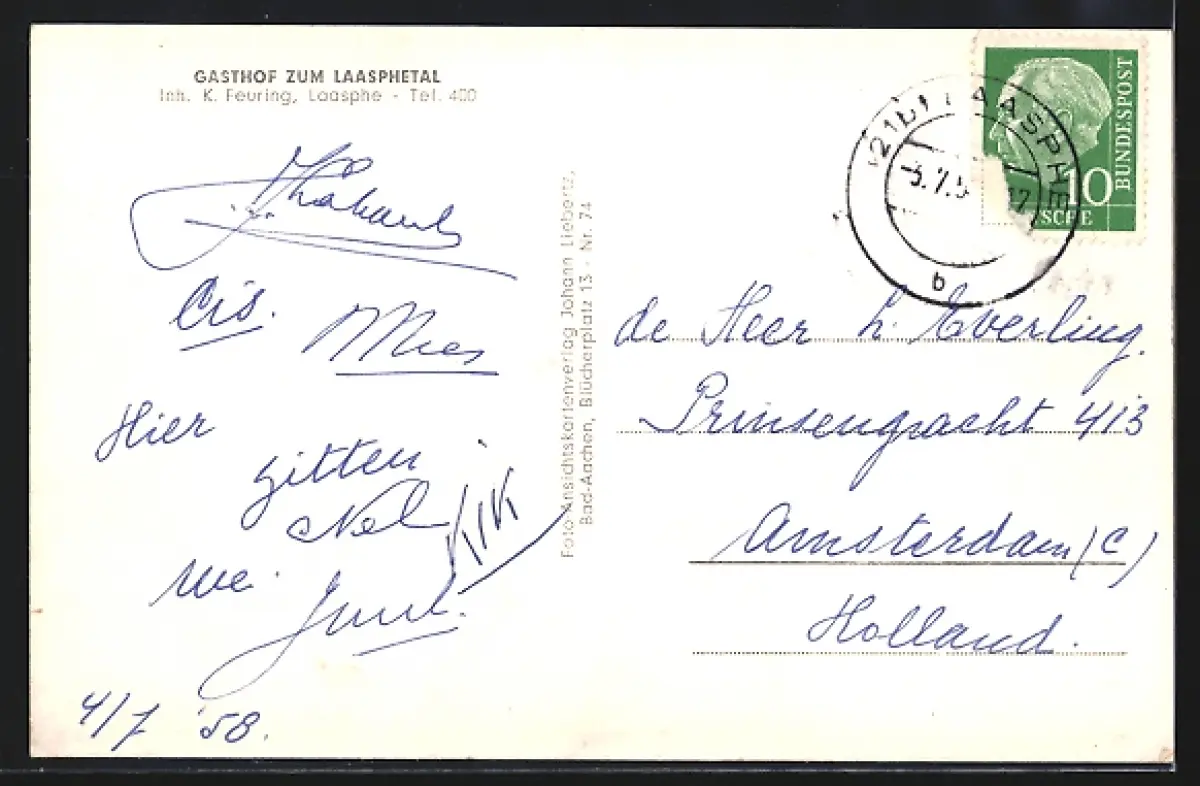 GASTHOF ZUM LAASPHETAL
Inh. K. Feuring, Laasphe - Tel. 400
Cis.
Mies
Hier
zitten
Nel
we.
4/7 '58.
Foto Ansichtskartenverlag Johann Liebertz,
Bad-Aachen, Blücherplatz 13 - Nr. 74
(21b) LAASPHE
b
10
BUNDESPOST
de Heer h. Everling.
Prinsengracht 413
Amsterdam (C)
Holland.